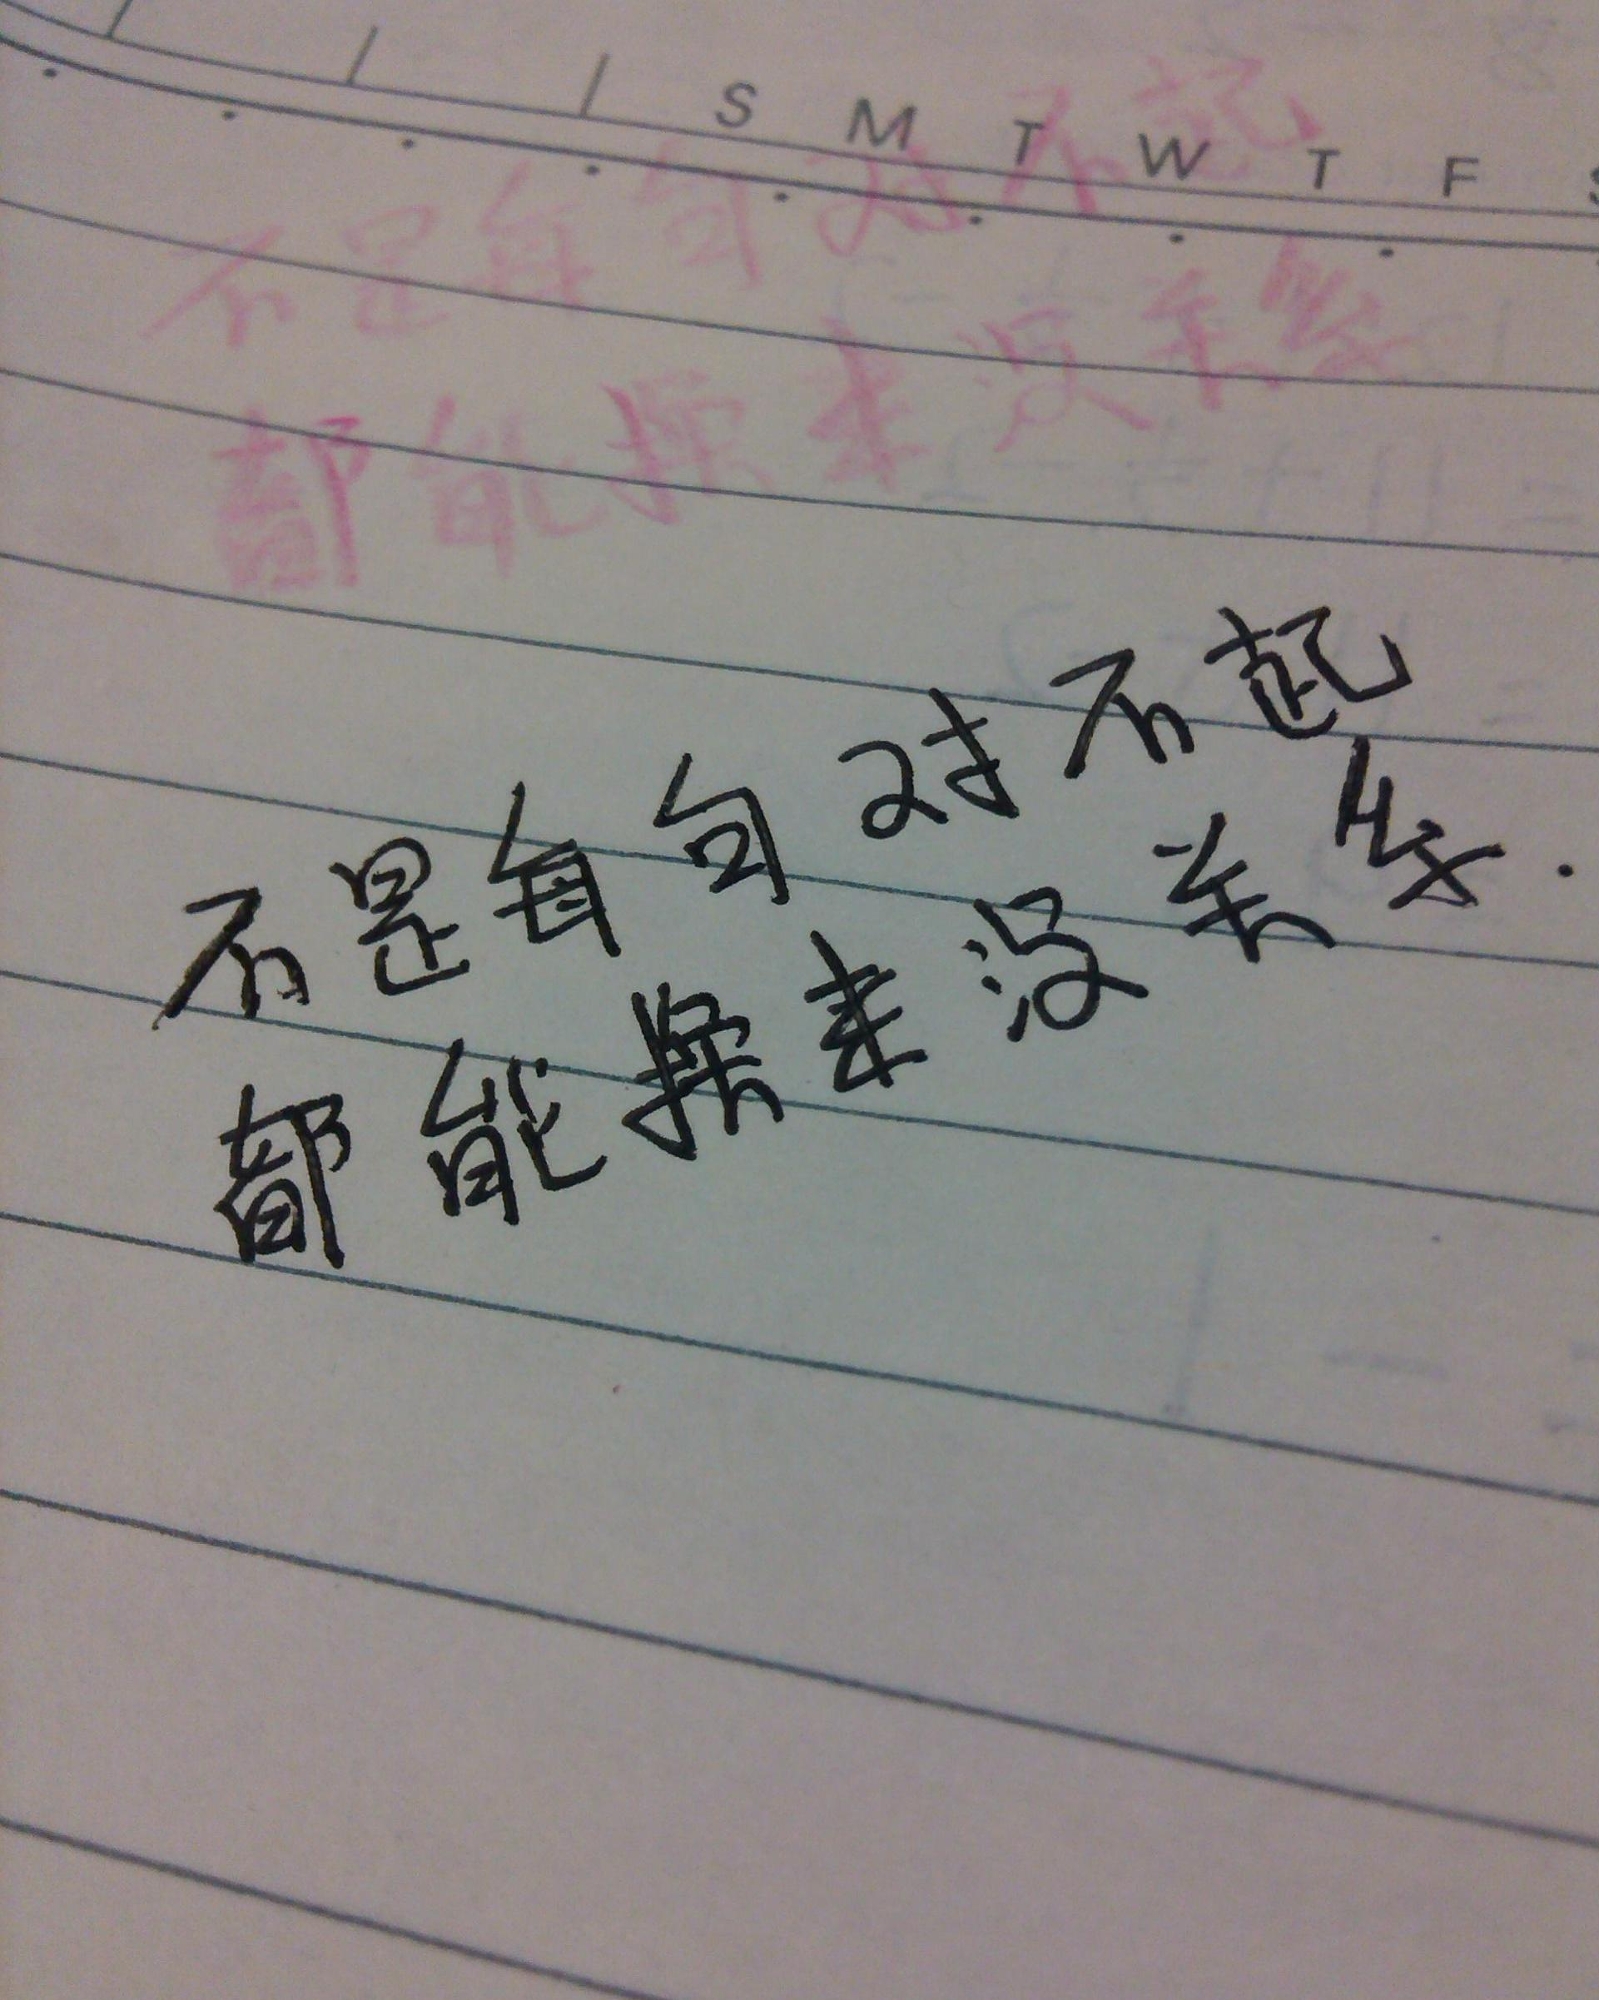 S M T W T F S
不是每句对不起
都能换来没关系
不是每句对不起
都能换来没关系.